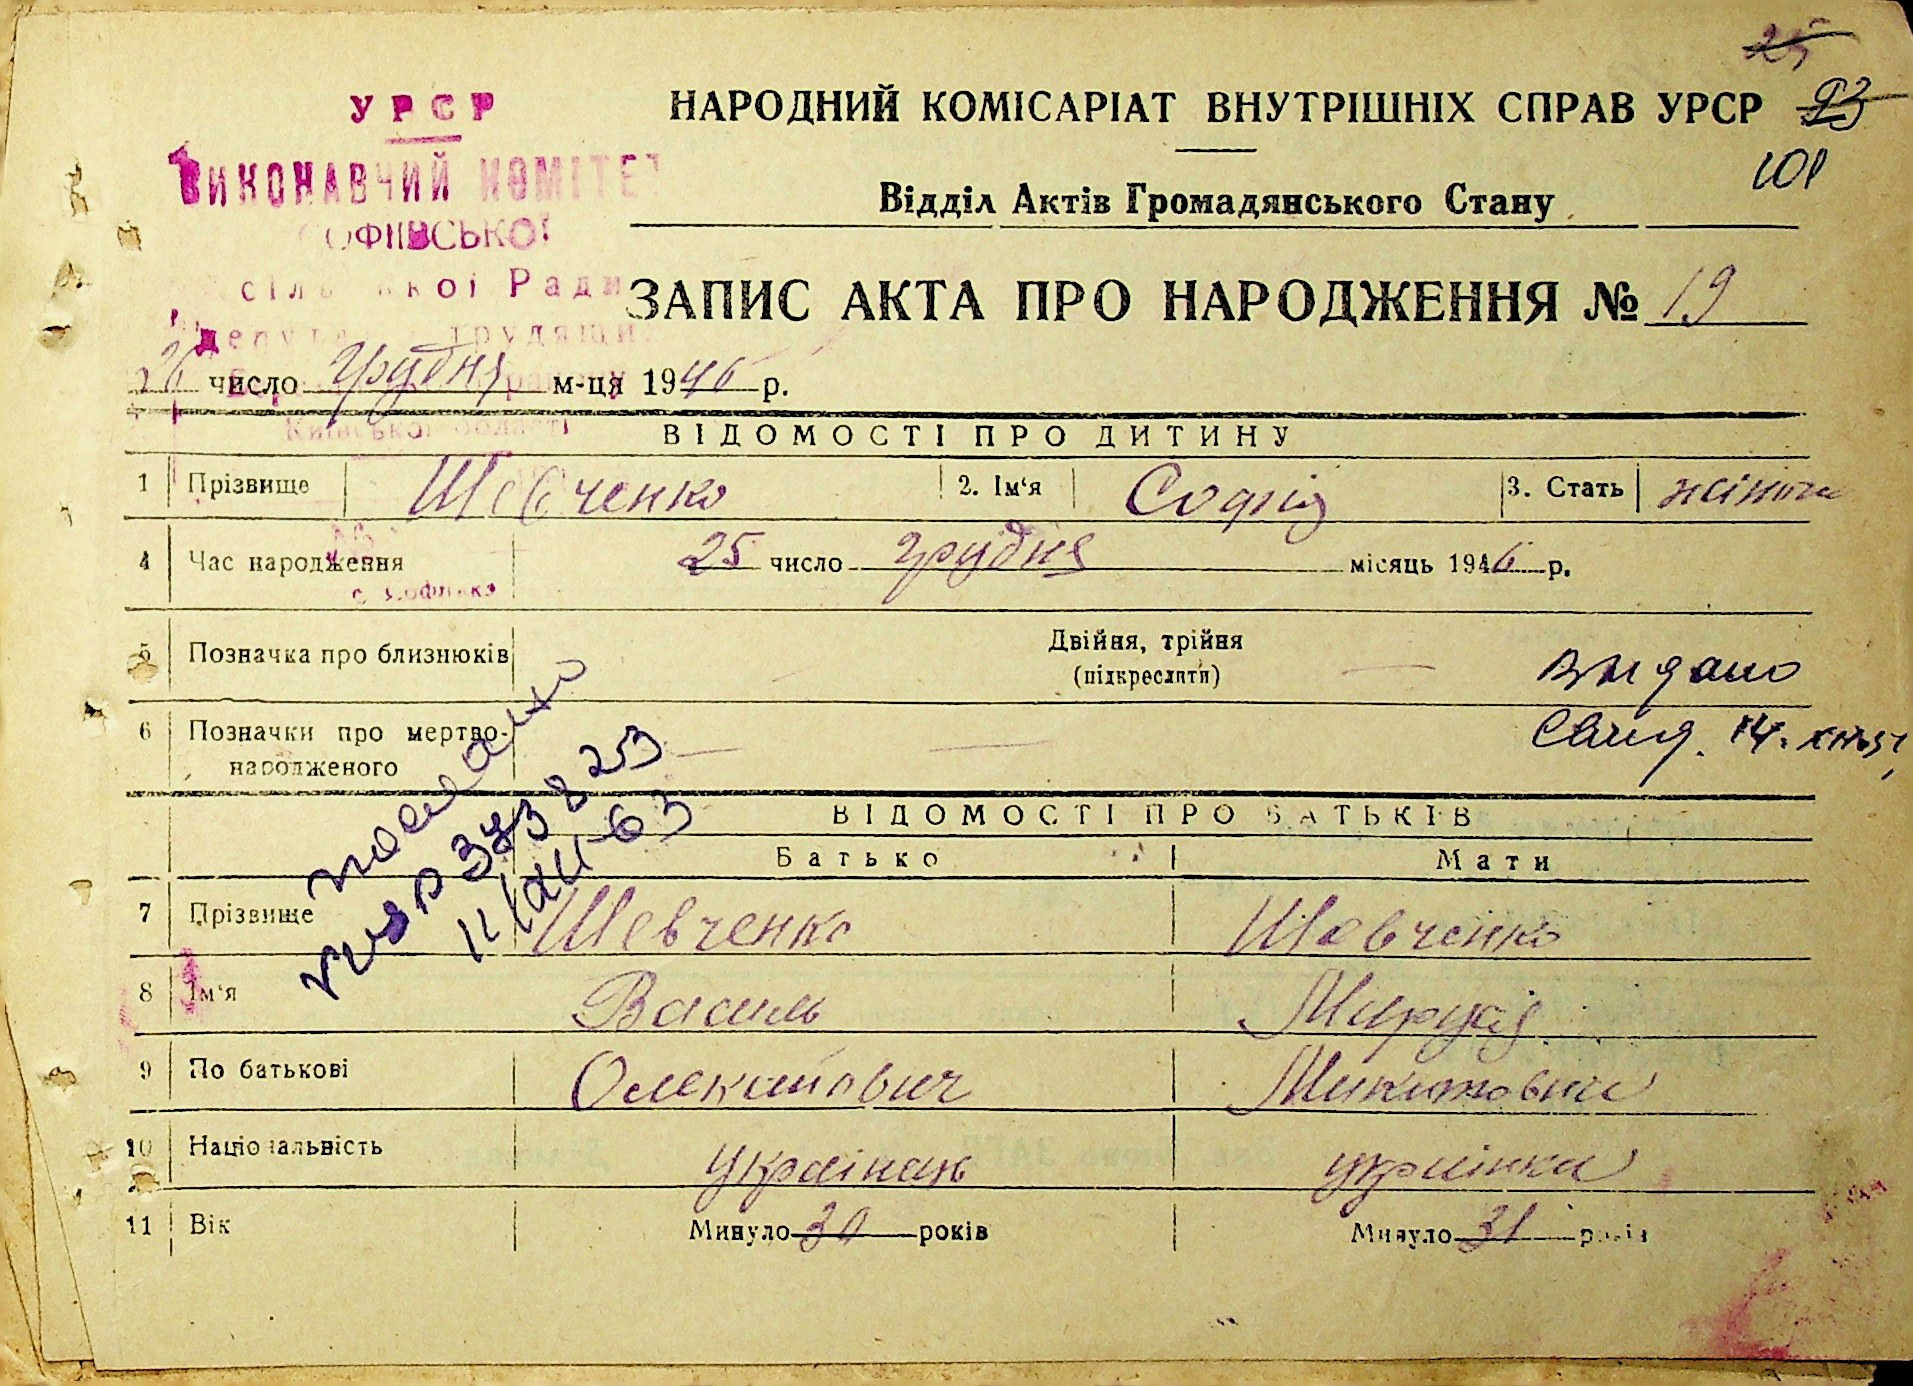 25
УРСР
НАРОДНИЙ КОМІСАРІАТ ВНУТРІШНІХ СПРАВ УРСР 93
ВИКОНАВЧИЙ КОМІТЕТ
101
Відділ Актів Громадянського Стану
СОФІЇВСЬКОЇ
сільської Ради
ЗАПИС АКТА ПРО НАРОДЖЕННЯ № 19
депутатів трудящих
26 число грудня м-ця 1946 р.
Київської області
ВІДОМОСТІ ПРО ДИТИНУ
1 Прізвище Шевченко 2. Ім'я Софія 3. Стать жіноча
4 Час народження 25 число грудня місяць 1946 р.
с. Софіївка
5 Позначка про близнюків Двійня, трійня
(підкреслити)
видано
6 Позначки про мертво-
народженого
Свид.
ВІДОМОСТІ ПРО БАТЬКІВ
Батько Мати
7 Прізвище Шевченко Шевченко
8 Ім'я Василь Маруся
9 По батькові
10 Національність українець українка
11 Вік Минуло 30 років Минуло 31 років